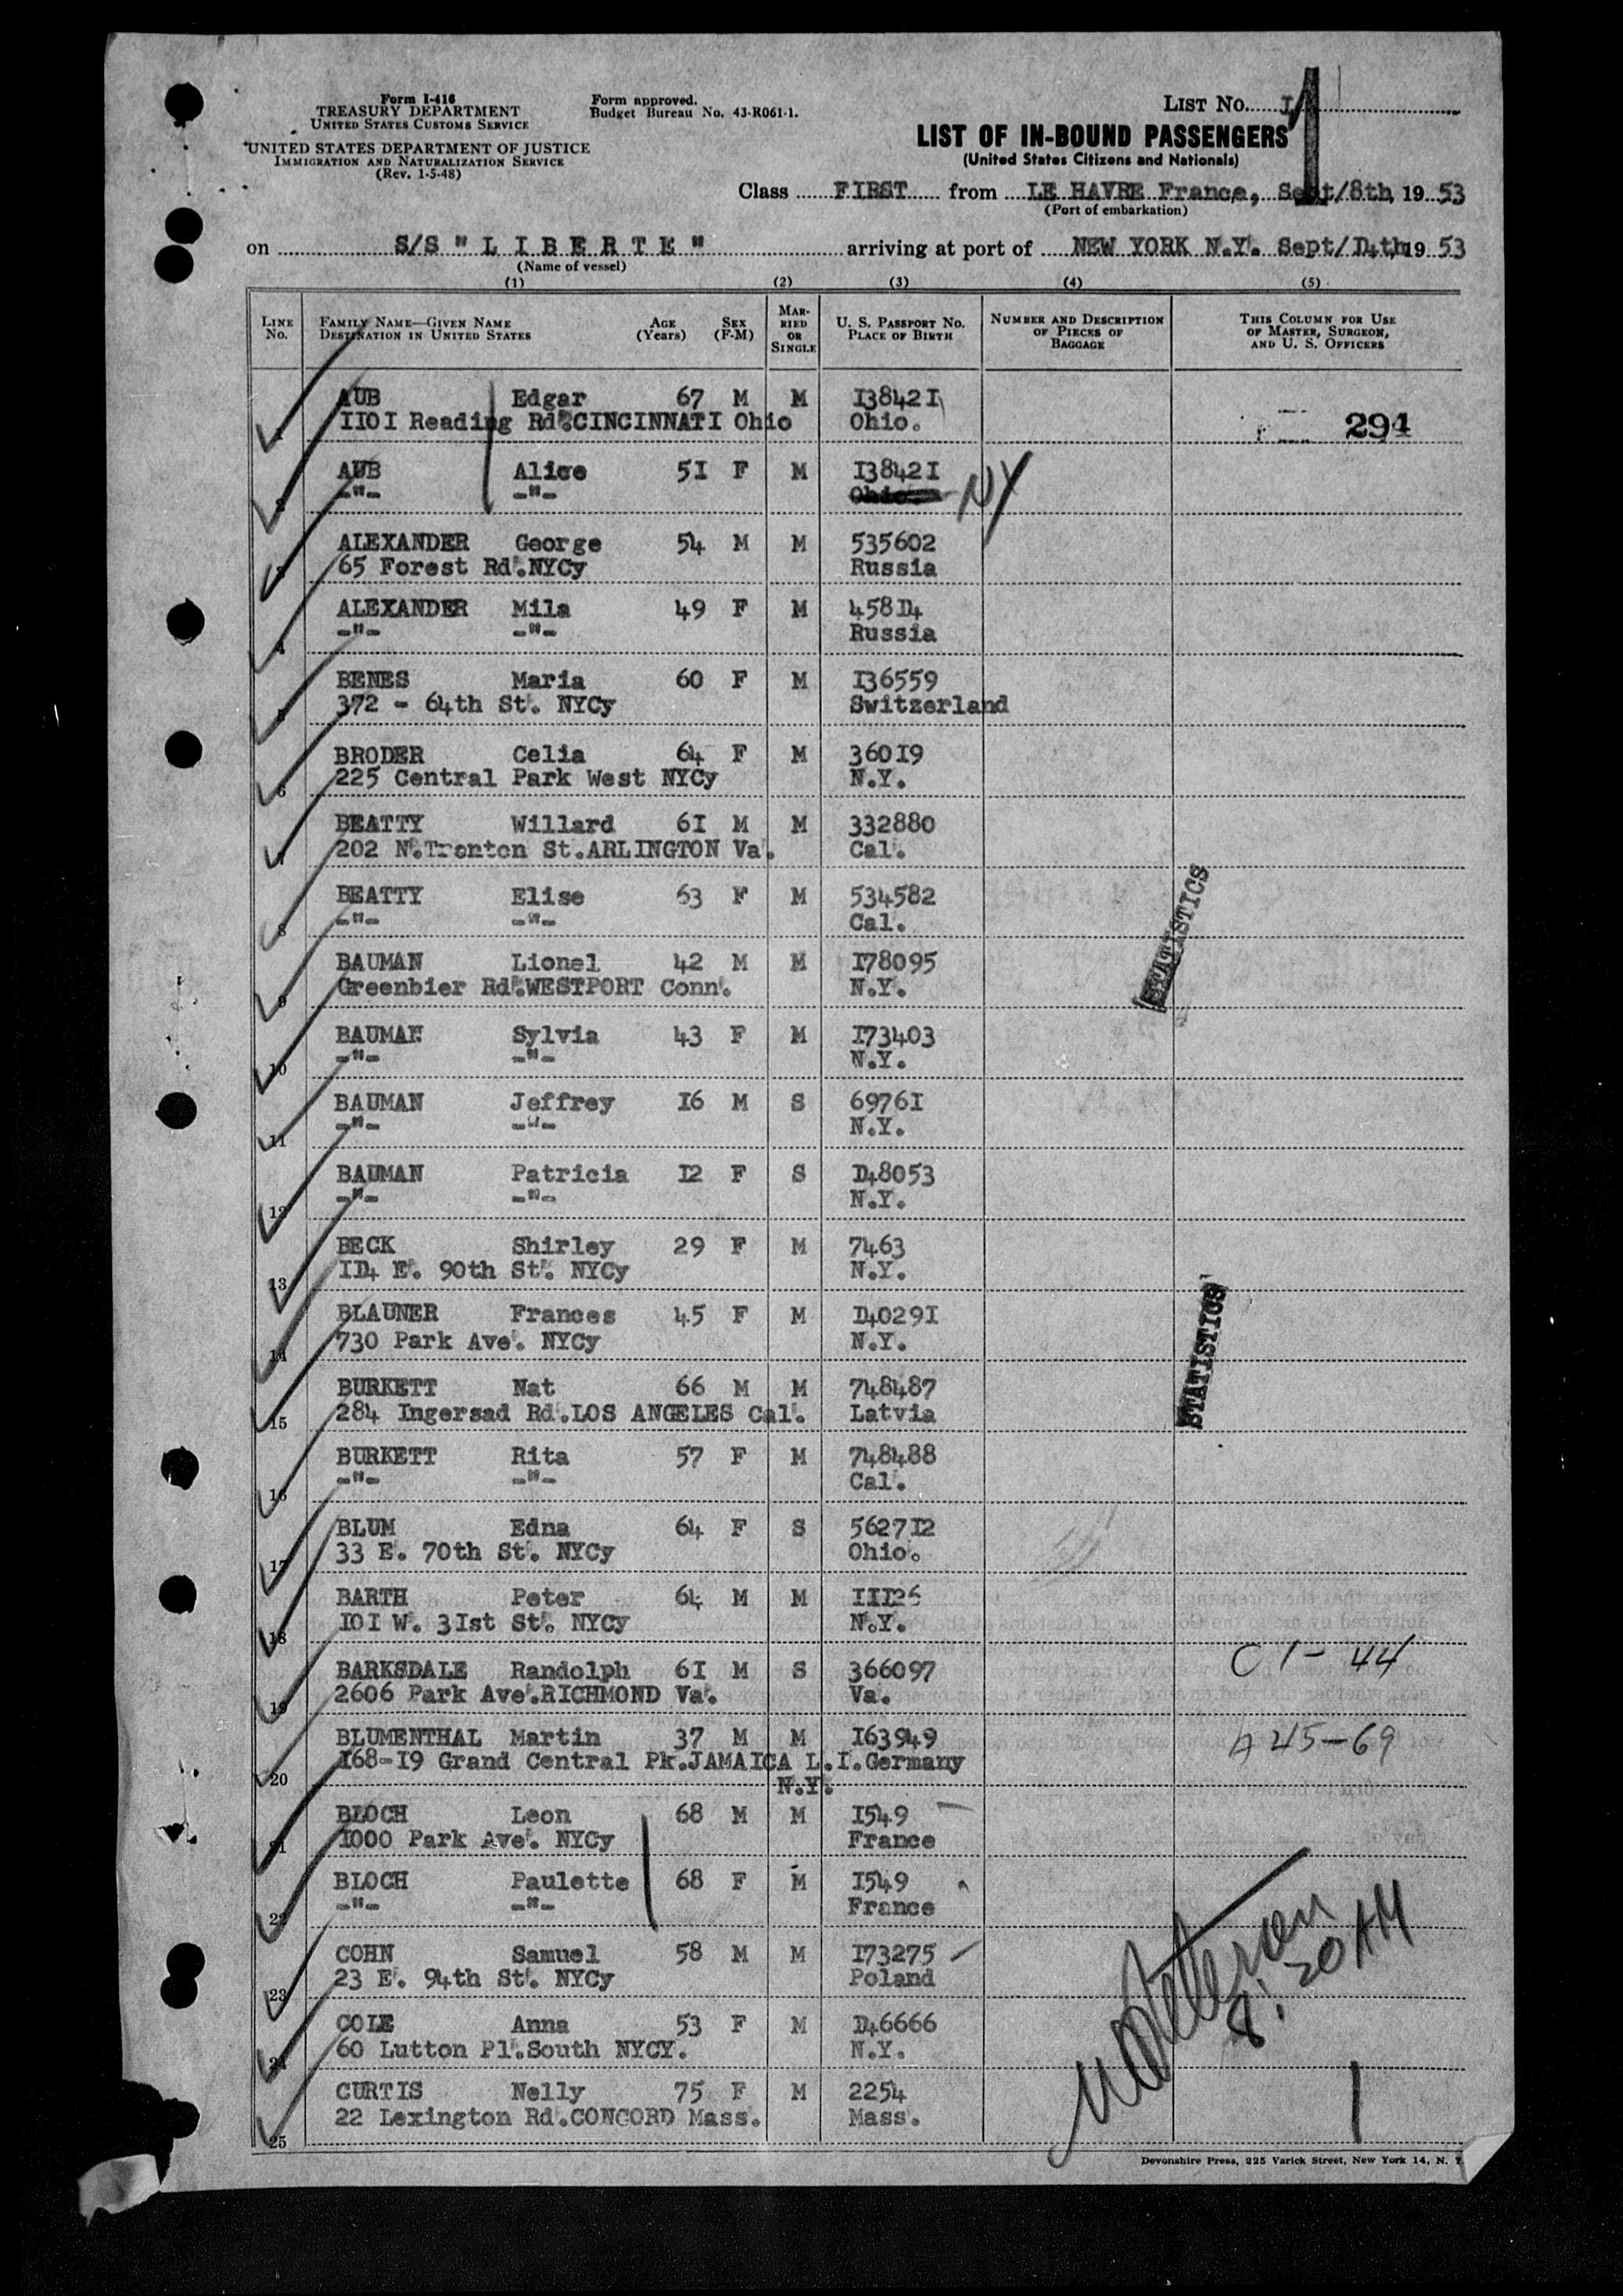 Form I-416
TREASURY DEPARTMENT
UNITED STATES CUSTOMS SERVICE
UNITED STATES DEPARTMENT OF JUSTICE
IMMIGRATION AND NATURALIZATION SERVICE
(Rev. 1-5-48)
Form approved.
Budget Bureau No. 43-R061-1.
LIST NO. I
LIST OF IN-BOUND PASSENGERS
(United States Citizens and Nationals)
Class FIRST from LE HAVRE France, Sept/8th, 19 53
(Port of embarkation)
on S/S "LIBERTE" arriving at port of NEW YORK N.Y. Sept/14th 19 53
(Name of vessel)
(1) (2) (3) (4) (5)
LINE NO. FAMILY NAME—GIVEN NAME DESTINATION IN UNITED STATES AGE (Years) SEX (F-M) MARRIED OR SINGLE U. S. PASSPORT NO. PLACE OF BIRTH NUMBER AND DESCRIPTION OF PIECES OF BAGGAGE THIS COLUMN FOR USE OF MASTER, SURGEON, AND U. S. OFFICERS
AUB Edgar 67 M M I3842I
IIOI Reading Rd.CINCINNATI Ohio Ohio. 294
AUB Alice 5I F M I3842I
-"- -"- NY
ALEXANDER George 54 M M 535602
65 Forest Rd.NYCy Russia
ALEXANDER Mila 49 F M 458I4
4 -"- -"- Russia
BENES Maria 60 F M I36559
5 372 - 64th St. NYCy Switzerland
BRODER Celia 64 F M 360I9
6 225 Central Park West NYCy N.Y.
BEATTY Willard 6I M M 332880
202 N.Trenton St.ARLINGTON Va. Cal.
BEATTY Elise 63 F M 534582
8 -"- -"- Cal.
BAUMAN Lionel 42 M M I78095
9 Greenbier Rd.WESTPORT Conn. N.Y.
BAUMAN Sylvia 43 F M I73403
10 -"- -"- N.Y.
BAUMAN Jeffrey I6 M S 6976I
11 -"- -"- N.Y.
BAUMAN Patricia I2 F S I48053
12 -"- -"- N.Y.
BECK Shirley 29 F M 7463
13 II4 E. 90th St. NYCy N.Y.
BLAUNER Frances 45 F M I4029I
14 730 Park Ave. NYCy N.Y.
BURKETT Nat 66 M M 748487
15 284 Ingersad Rd.LOS ANGELES Cal. Latvia
BURKETT Rita 57 F M 748488
16 -"- -"- Cal.
BLUM Edna 64 F S 5627I2
17 33 E. 70th St. NYCy Ohio.
BARTH Peter 64 M M IIII26
18 IOI W. 3Ist St. NYCy N.Y.
BARKSDALE Randolph 6I M S 366097 C 1 - 44
19 2606 Park Ave.RICHMOND Va. Va.
BLUMENTHAL Martin 37 M M I63949 A 45-69
I68-I9 Grand Central Pk.JAMAICA L.I.Germany
20 N.Y.
BLOCH Leon 68 M M I549
21 I000 Park Ave. NYCy France
BLOCH Paulette 68 F M I549
22 -"- -"- France
COHN Samuel 58 M M I73275
23 23 E. 94th St. NYCy Poland
COLE Anna 53 F M I46666
24 60 Lutton Pl.South NYCY. N.Y.
CURTIS Nelly 75 F M 2254
22 Lexington Rd.CONCORD Mass. Mass.
25
STATISTICS
STATISTICS
8:20 AM
1
Devonshire Press, 225 Varick Street, New York 14, N. Y.